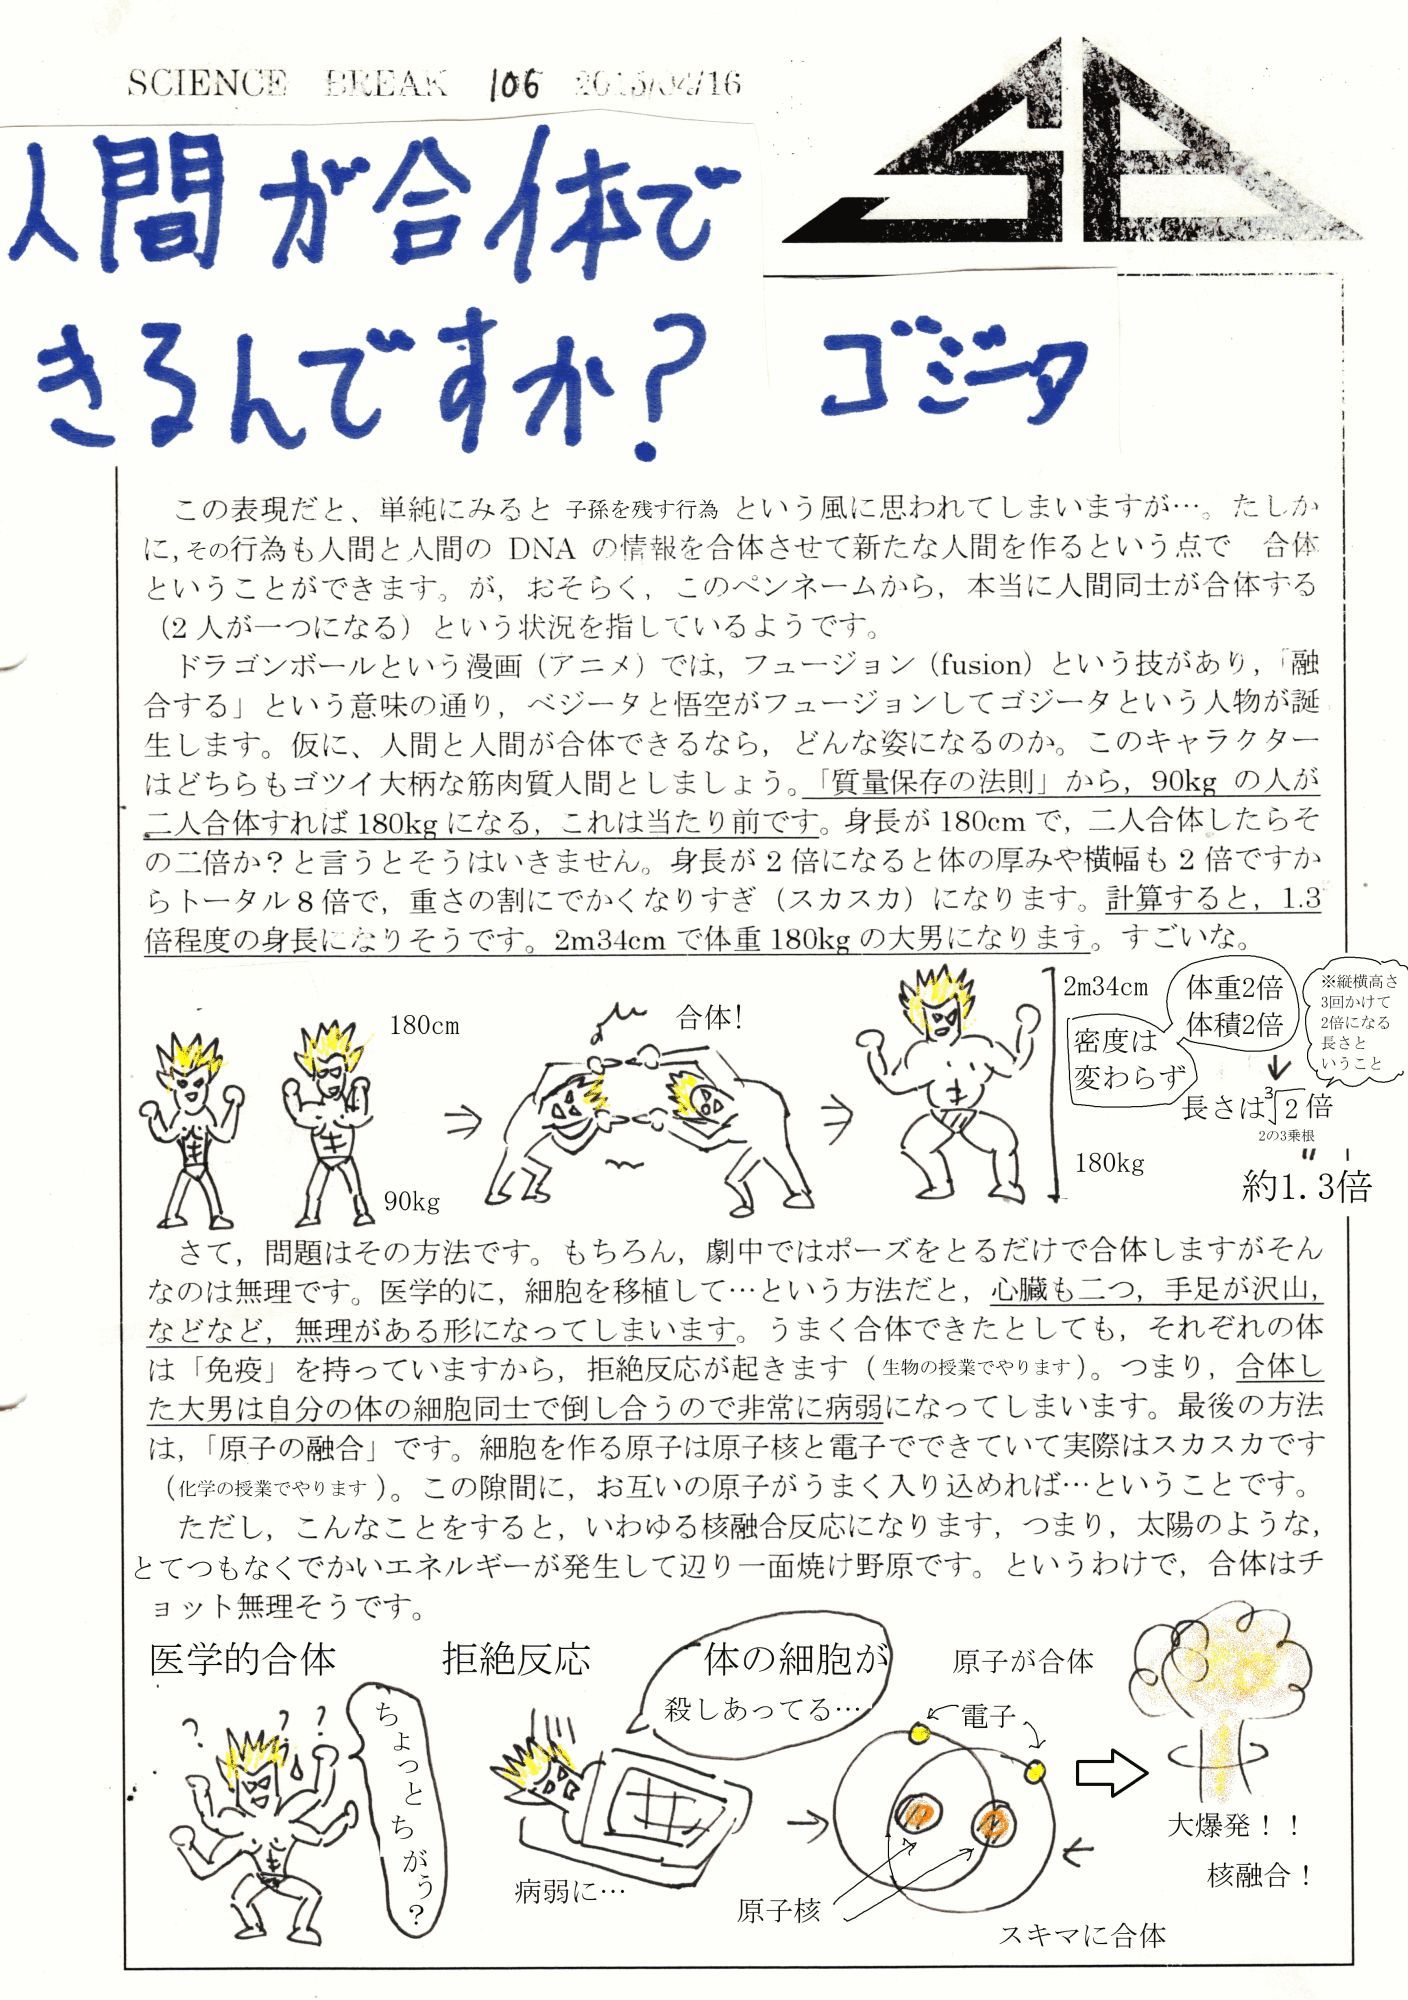 SCIENCE BREAK 106 2015/04/16
人間が合体で
きるんですか? ゴジータ
この表現だと、単純にみると 子孫を残す行為 という風に思われてしまいますが…。たしか
に,その行為も人間と人間の DNA の情報を合体させて新たな人間を作るという点で 合体
ということができます。が，おそらく，このペンネームから，本当に人間同士が合体する
（2 人が一つになる）という状況を指しているようです。
ドラゴンボールという漫画（アニメ）では，フュージョン（fusion）という技があり，「融
合する」という意味の通り，ベジータと悟空がフュージョンしてゴジータという人物が誕
生します。仮に、人間と人間が合体できるなら，どんな姿になるのか。このキャラクター
はどちらもゴツイ大柄な筋肉質人間としましょう。「質量保存の法則」から，90kg の人が
二人合体すれば 180kg になる，これは当たり前です。身長が 180cm で，二人合体したらそ
の二倍か？と言うとそうはいきません。身長が 2 倍になると体の厚みや横幅も 2 倍ですか
らトータル 8 倍で，重さの割にでかくなりすぎ（スカスカ）になります。計算すると，1.3
倍程度の身長になりそうです。2m34cm で体重 180kg の大男になります。すごいな。
180cm
90kg
合体!
2m34cm
180kg
密度は
変わらず
体重2倍
体積2倍
※縦横高さ
3回かけて
2倍になる
長さと
いうこと
長さは ∛2 倍
2の3乗根
〃
約1.3倍
さて，問題はその方法です。もちろん，劇中ではポーズをとるだけで合体しますがそん
なのは無理です。医学的に，細胞を移植して…という方法だと，心臓も二つ，手足が沢山，
などなど，無理がある形になってしまいます。うまく合体できたとしても，それぞれの体
は「免疫」を持っていますから，拒絶反応が起きます（生物の授業でやります）。つまり，合体し
た大男は自分の体の細胞同士で倒し合うので非常に病弱になってしまいます。最後の方法
は，「原子の融合」です。細胞を作る原子は原子核と電子でできていて実際はスカスカです
（化学の授業でやります）。この隙間に，お互いの原子がうまく入り込めれば…ということです。
ただし，こんなことをすると，いわゆる核融合反応になります，つまり，太陽のような，
とてつもなくでかいエネルギーが発生して辺り一面焼け野原です。というわけで，合体はチ
ョット無理そうです。
医学的合体
? ? ?
ちょっとちがう?
拒絶反応
体の細胞が
殺しあってる…
病弱に…
原子が合体
電子
原子核
スキマに合体
大爆発！！
核融合！